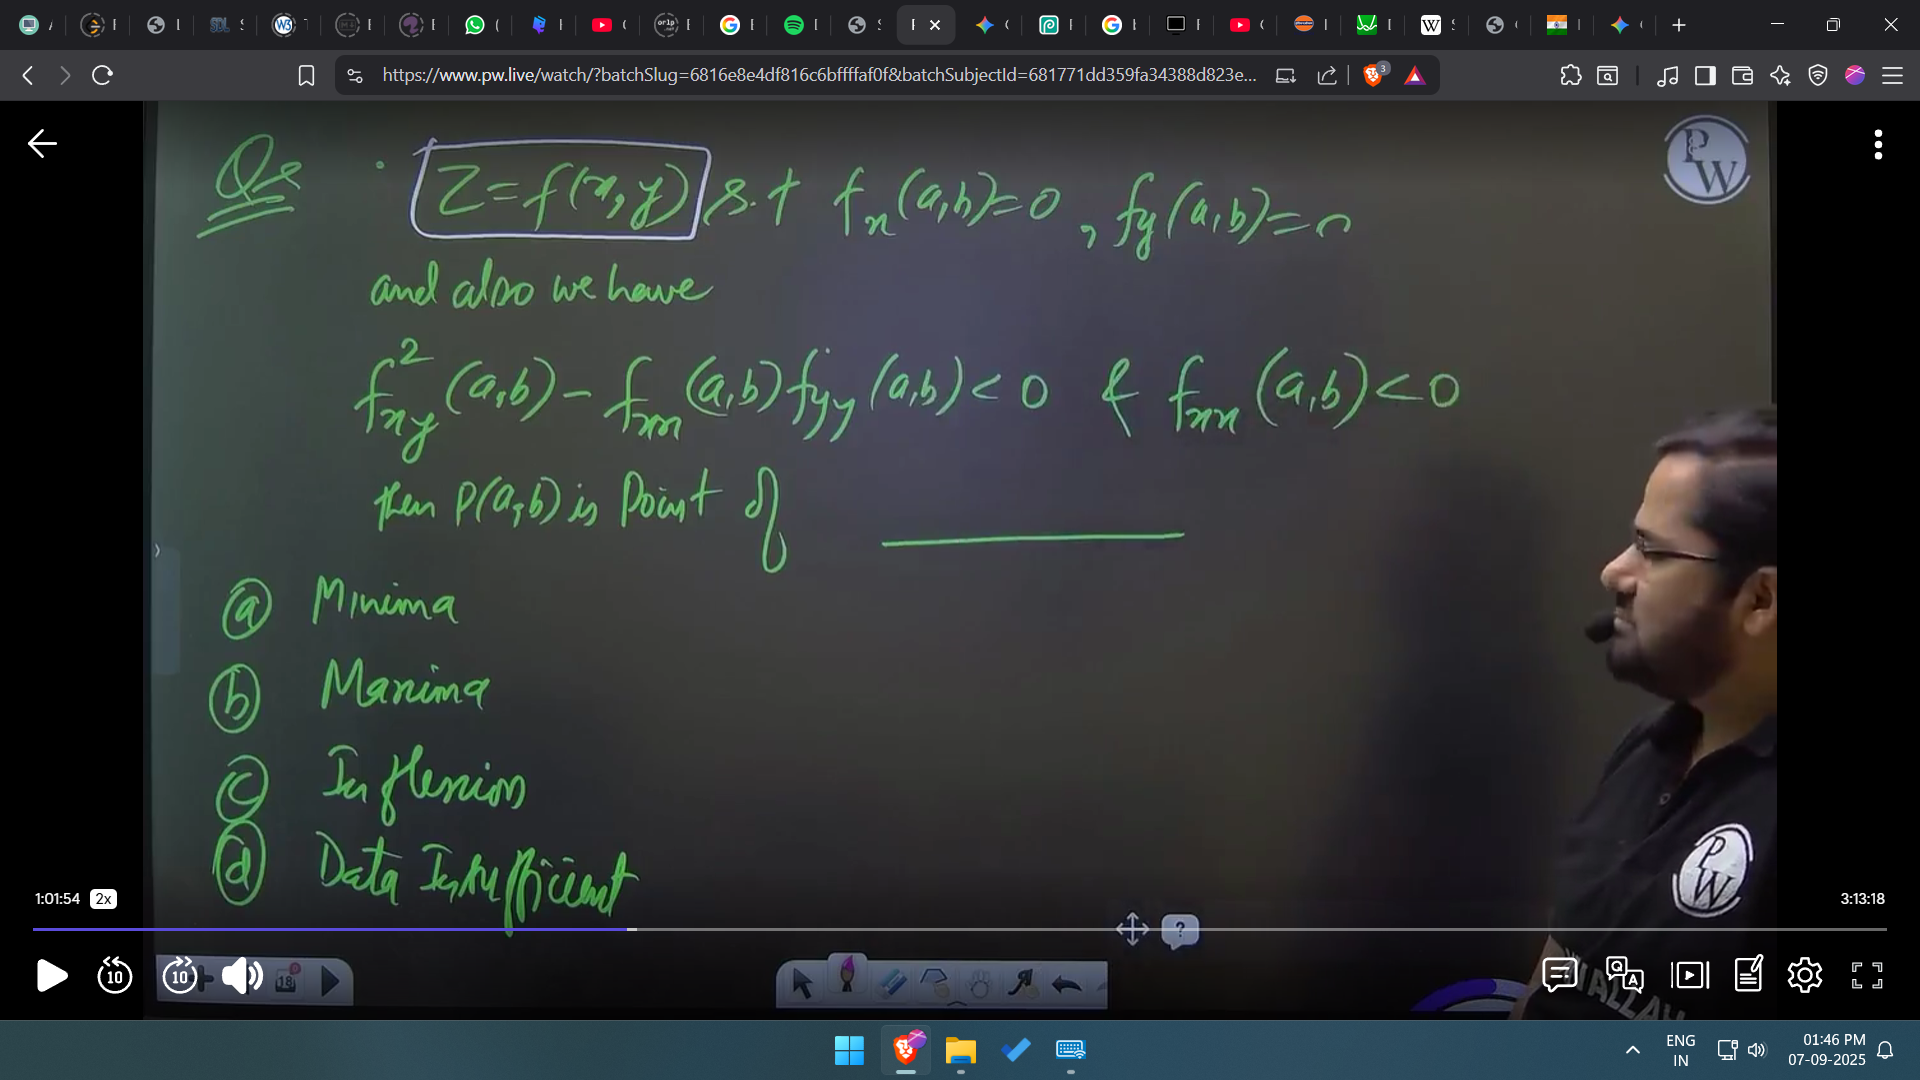 https://www.pw.live/watch/?batchSlug=6816e8e4df816c6bffffaf0f&batchSubjectId=681771dd359fa34388d823e...
3
Qs Z=f(x,y) s.t fx(a,b)=0, fy(a,b)=0
and also we have
f²xy(a,b) - fxx(a,b) fyy(a,b) < 0 & fxx(a,b) < 0
then P(a,b) is Point of ________
(a) Minima
(b) Maxima
(c) Inflexion
(d) Data Insufficient
PW
PW
1:01:54 2x
3:13:18
10
10
18
ENG
IN
01:46 PM
07-09-2025